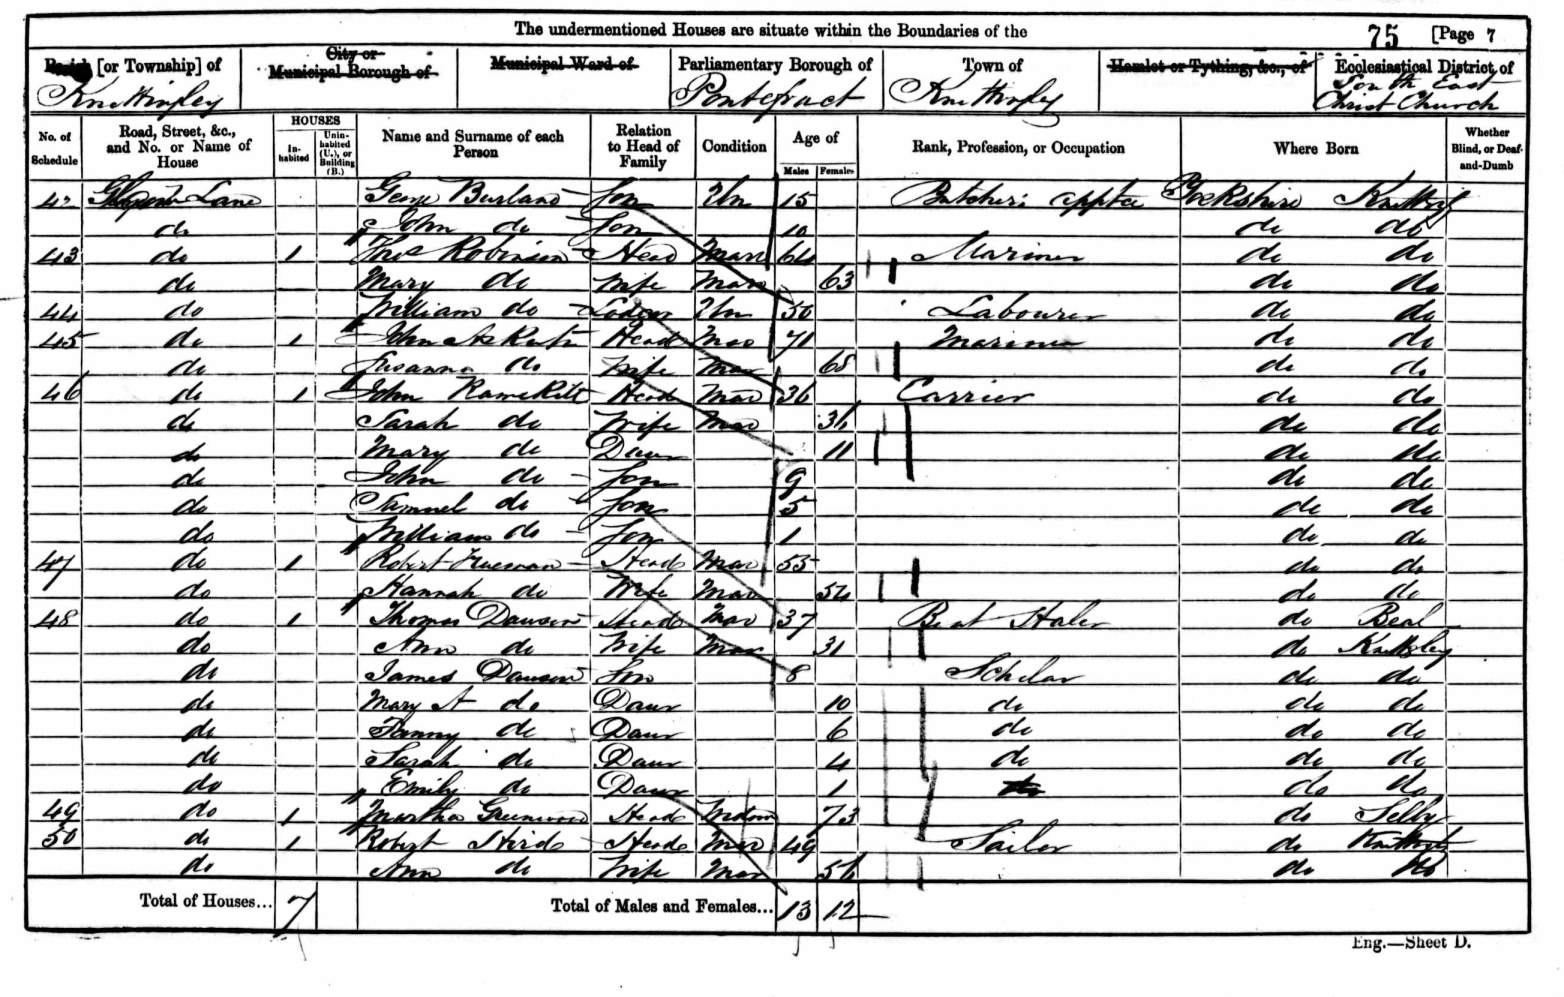 The undermentioned Houses are situate within the Boundaries of the
75 [Page 7
Parish [or Township] of City or Municipal Borough of Municipal Ward of Parliamentary Borough of Town of Hamlet or Tything, &c., of Ecclesiastical District of
Knottingley Pontefract Knottingley South East Christ Church
No. of Schedule Road, Street, &c., and No. or Name of House HOUSES In-habited Unin-habited (U.), or Building (B.) Name and Surname of each Person Relation to Head of Family Condition Age of Males Females Rank, Profession, or Occupation Where Born Whether Blind, or Deaf-and-Dumb
42 Lane George Burland Son Un 15 Butcher's apptce Yorkshire
do John do Son 10 do do
43 do 1 Thos Robinson Head Mar 64 Mariner do do
do Mary do Wife Mar 63 do do
44 do William do Lodger Un 50 Labourer do do
45 do 1 John Head Mar 71 Mariner do do
do Susanna do Wife Mar 68 do do
46 do 1 John Head Mar 36 Carrier do do
do Sarah do Wife Mar 36 do do
do Mary do Daur 11 do do
do John do Son 9 do do
do Samuel do Son 5 do do
do William do Son 1 do do
47 do 1 Robert Head Mar 55 do do
do Hannah do Wife Mar 54 do do
48 do 1 Thomas Dawson Head Mar 37 Boat Haler do Beal
do Ann do Wife Mar 31 do
do James Dawson Son 8 Scholar do do
do Mary A do Daur 10 do do do
do Fanny do Daur 6 do do do
do Sarah do Daur 4 do do do
do Emily do Daur 1 do do
49 do 1 Martha Greenwood Head Widow 73 do Selby
50 do 1 Robert Hird Head Mar 49 Sailor do
do Ann do Wife Mar 56 do do
Total of Houses... 7 Total of Males and Females... 13 12
Eng.—Sheet D.